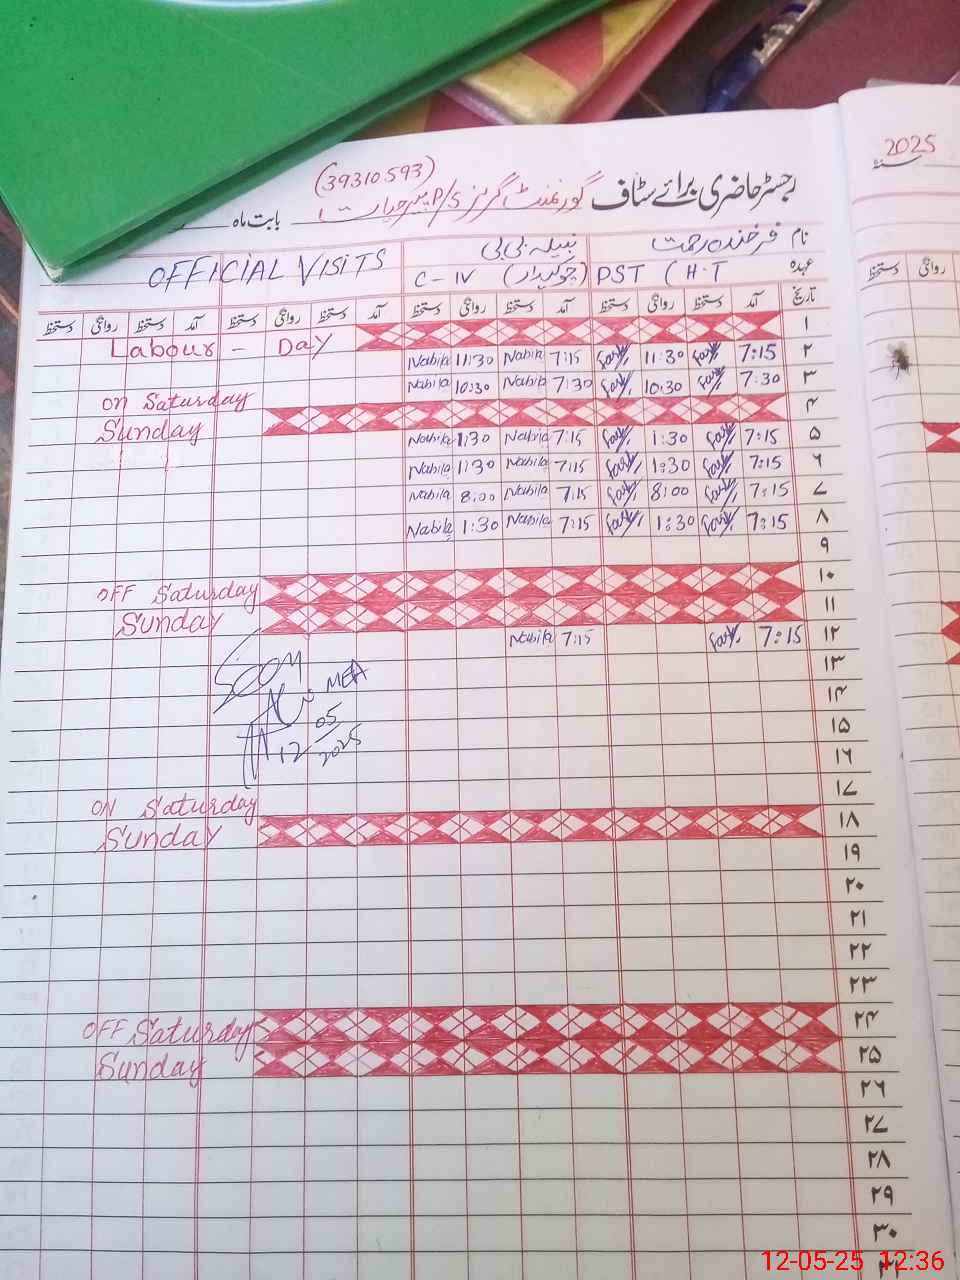 2025
سنہ
(39310593)
رجسٹر حاضری برائے سٹاف گورنمنٹ گرلز P/S پیر حیات بابت ماہ
نام فرخندہ رحمت نبیلہ بی بی
OFFICIAL VISITS
عہدہ PST (H.T C-IV (چوکیدار)
تاریخ آمد دستخط روانگی دستخط آمد دستخط روانگی دستخط آمد دستخط روانگی دستخط آمد دستخط روانگی دستخط
روانگی دستخط
۱
Labour - Day
Nabila 11:30 Nabila 7:15 11:30 7:15 ۲
Nabila 10:30 Nabila 7:30 10:30 7:30 ۳
ON Saturday
۴
Sunday
Nabila 1:30 Nabila 7:15 1:30 7:15 ۵
Nabila 1:30 Nabila 7:15 1:30 7:15 ۶
Nabila 8:00 Nabila 7:15 8:00 7:15 ۷
Nabila 1:30 Nabila 7:15 1:30 7:15 ۸
۹
OFF Saturday ۱۰
Sunday ۱۱
Nabila 7:15 7:15 ۱۲
۱۳
MEA
۱۴
12/05/2025
۱۵
۱۶
۱۷
ON Saturday
Sunday ۱۸
۱۹
۲۰
۲۱
۲۲
۲۳
OFF Saturday ۲۴
Sunday ۲۵
۲۶
۲۷
۲۸
۲۹
۳۰
۳۱
12-05-25 12:36